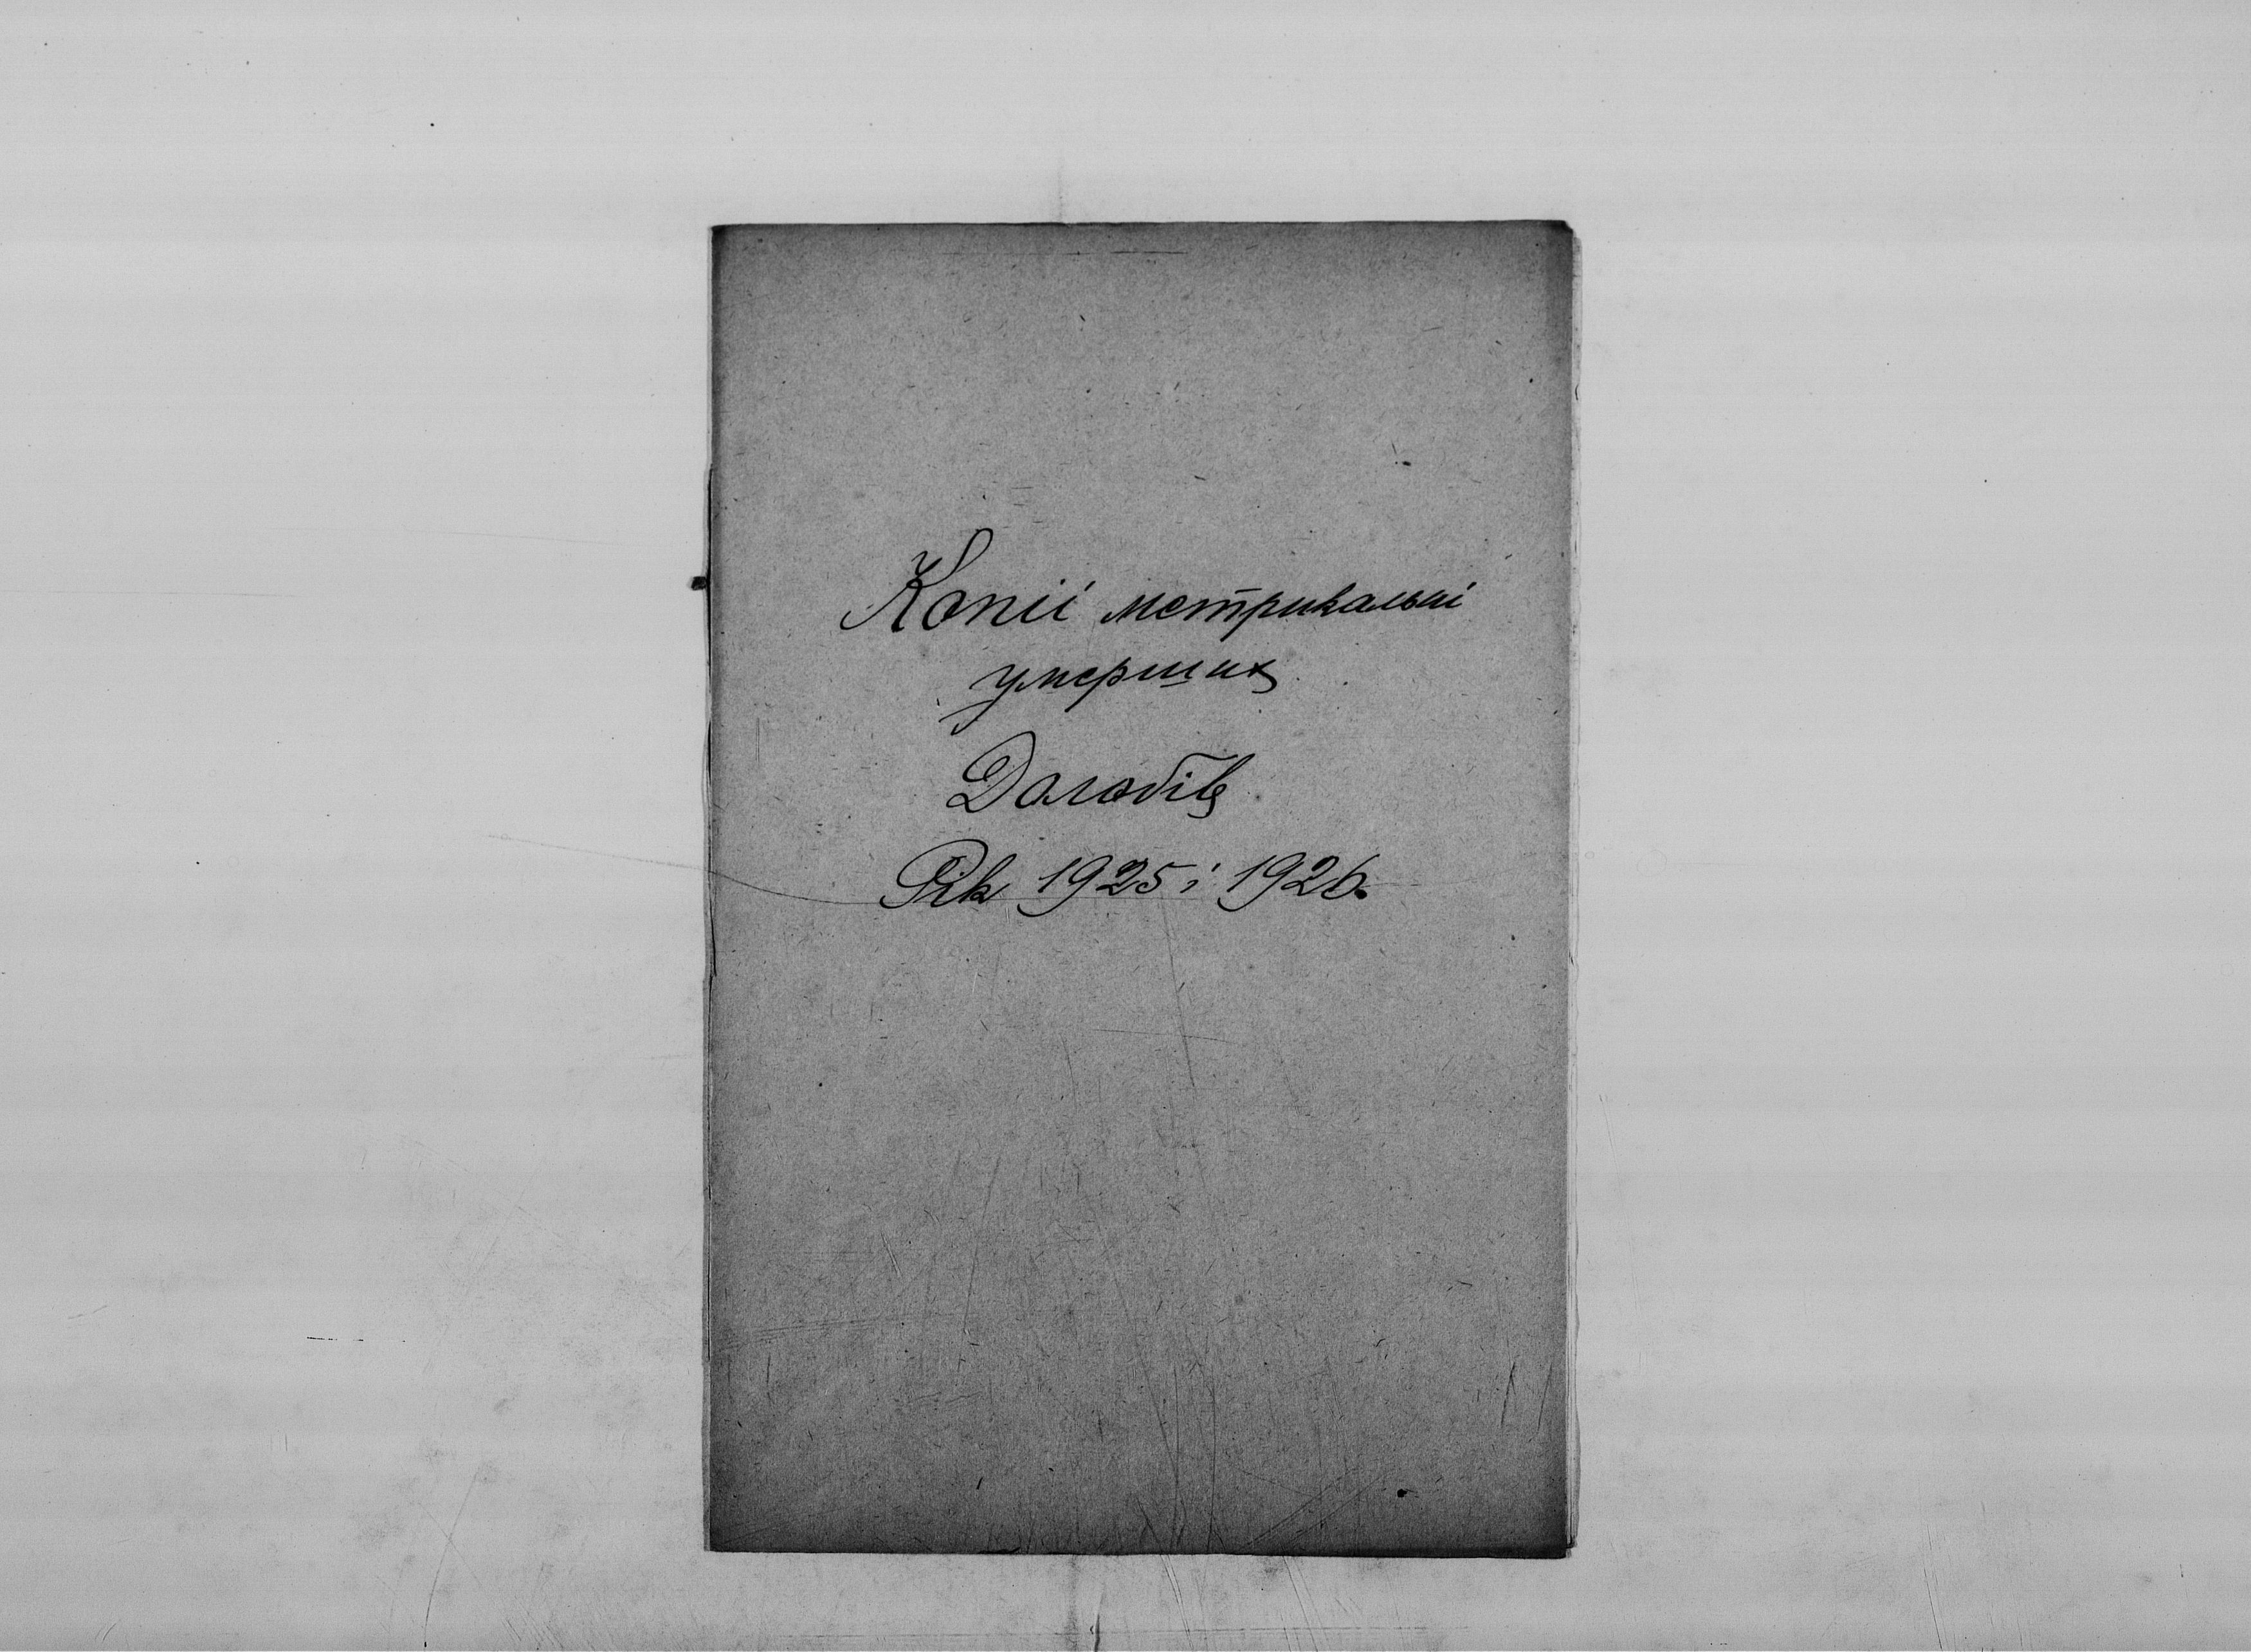 Копії метрикальні
умерших
Дологобів
Рік 1925 і 1926.